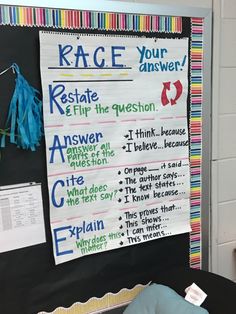 RACE Your
answer!
Restate
& Flip the question.
Answer
all
parts of the
question.
• I think...because
• I believe...because
Cite
What does
the text say?
• On page __, it said...
• The author says...
• The text states...
• I know because...
Explain
Why does this
matter?
• This proves that...
• This shows...
• I can infer...
• This means...